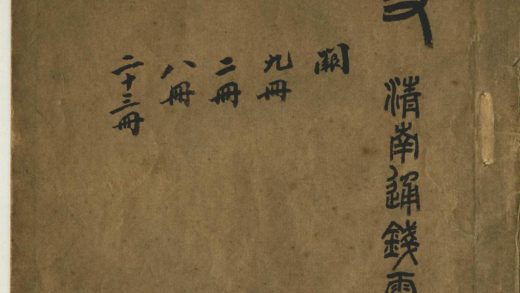 清南通錢
闕
九冊
二冊
八冊
二十三冊